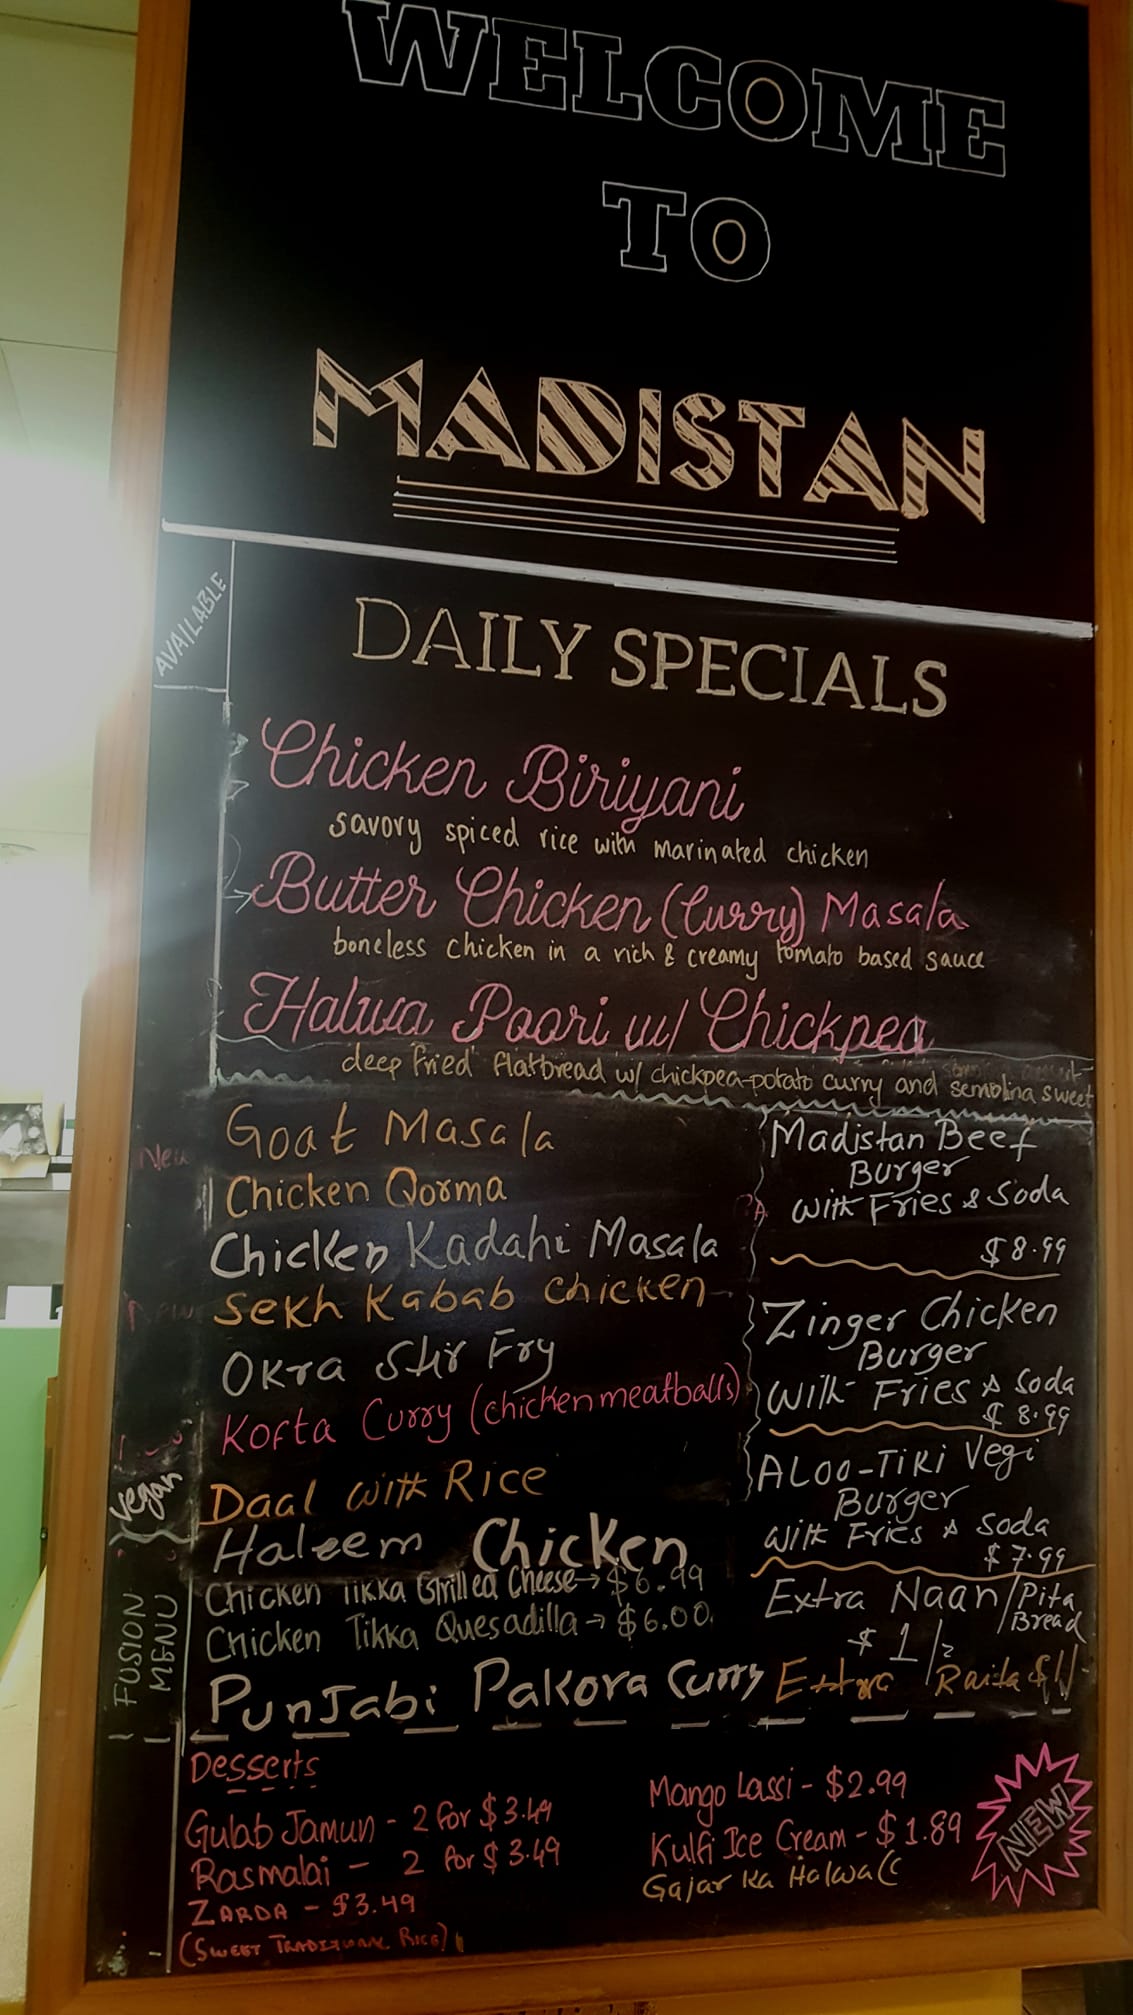 WELCOME
TO
MADISTAN
AVAILABLE
DAILY SPECIALS
Chicken Biriyani
savory spiced rice with marinated chicken
Butter Chicken (Curry) Masala
boneless chicken in a rich & creamy tomato based sauce
Halwa Poori w/ Chickpea
deep fried flatbread w/ chickpea-potato curry and semolina sweet
New
Goat Masala
Chicken Qorma
Chicken Kadahi Masala
New
Sekh Kabab Chicken
Okra Stir Fry
Kofta Curry (chicken meatballs)
Vegan
Daal with Rice
Haleem Chicken
FUSION
MENU
Chicken Tikka Grilled Cheese → $6.99
Chicken Tikka Quesadilla → $6.00
Punjabi Pakora Curry
Madistan Beef
Burger
with Fries & Soda
$8.99
Zinger Chicken
Burger
with Fries & Soda
$8.99
Aloo-Tiki Vegi
Burger
with Fries & Soda
$7.99
Extra Naan/Pita
Bread
$1/2
Extra Raita
Desserts
Gulab Jamun - 2 for $3.49
Rasmalai - 2 for $3.49
ZARDA - $3.49
(SWEET TRADITIONAL RICE)
Mango Lassi - $2.99
Kulfi Ice Cream - $1.89
Gajar Ka Halwa
NEW